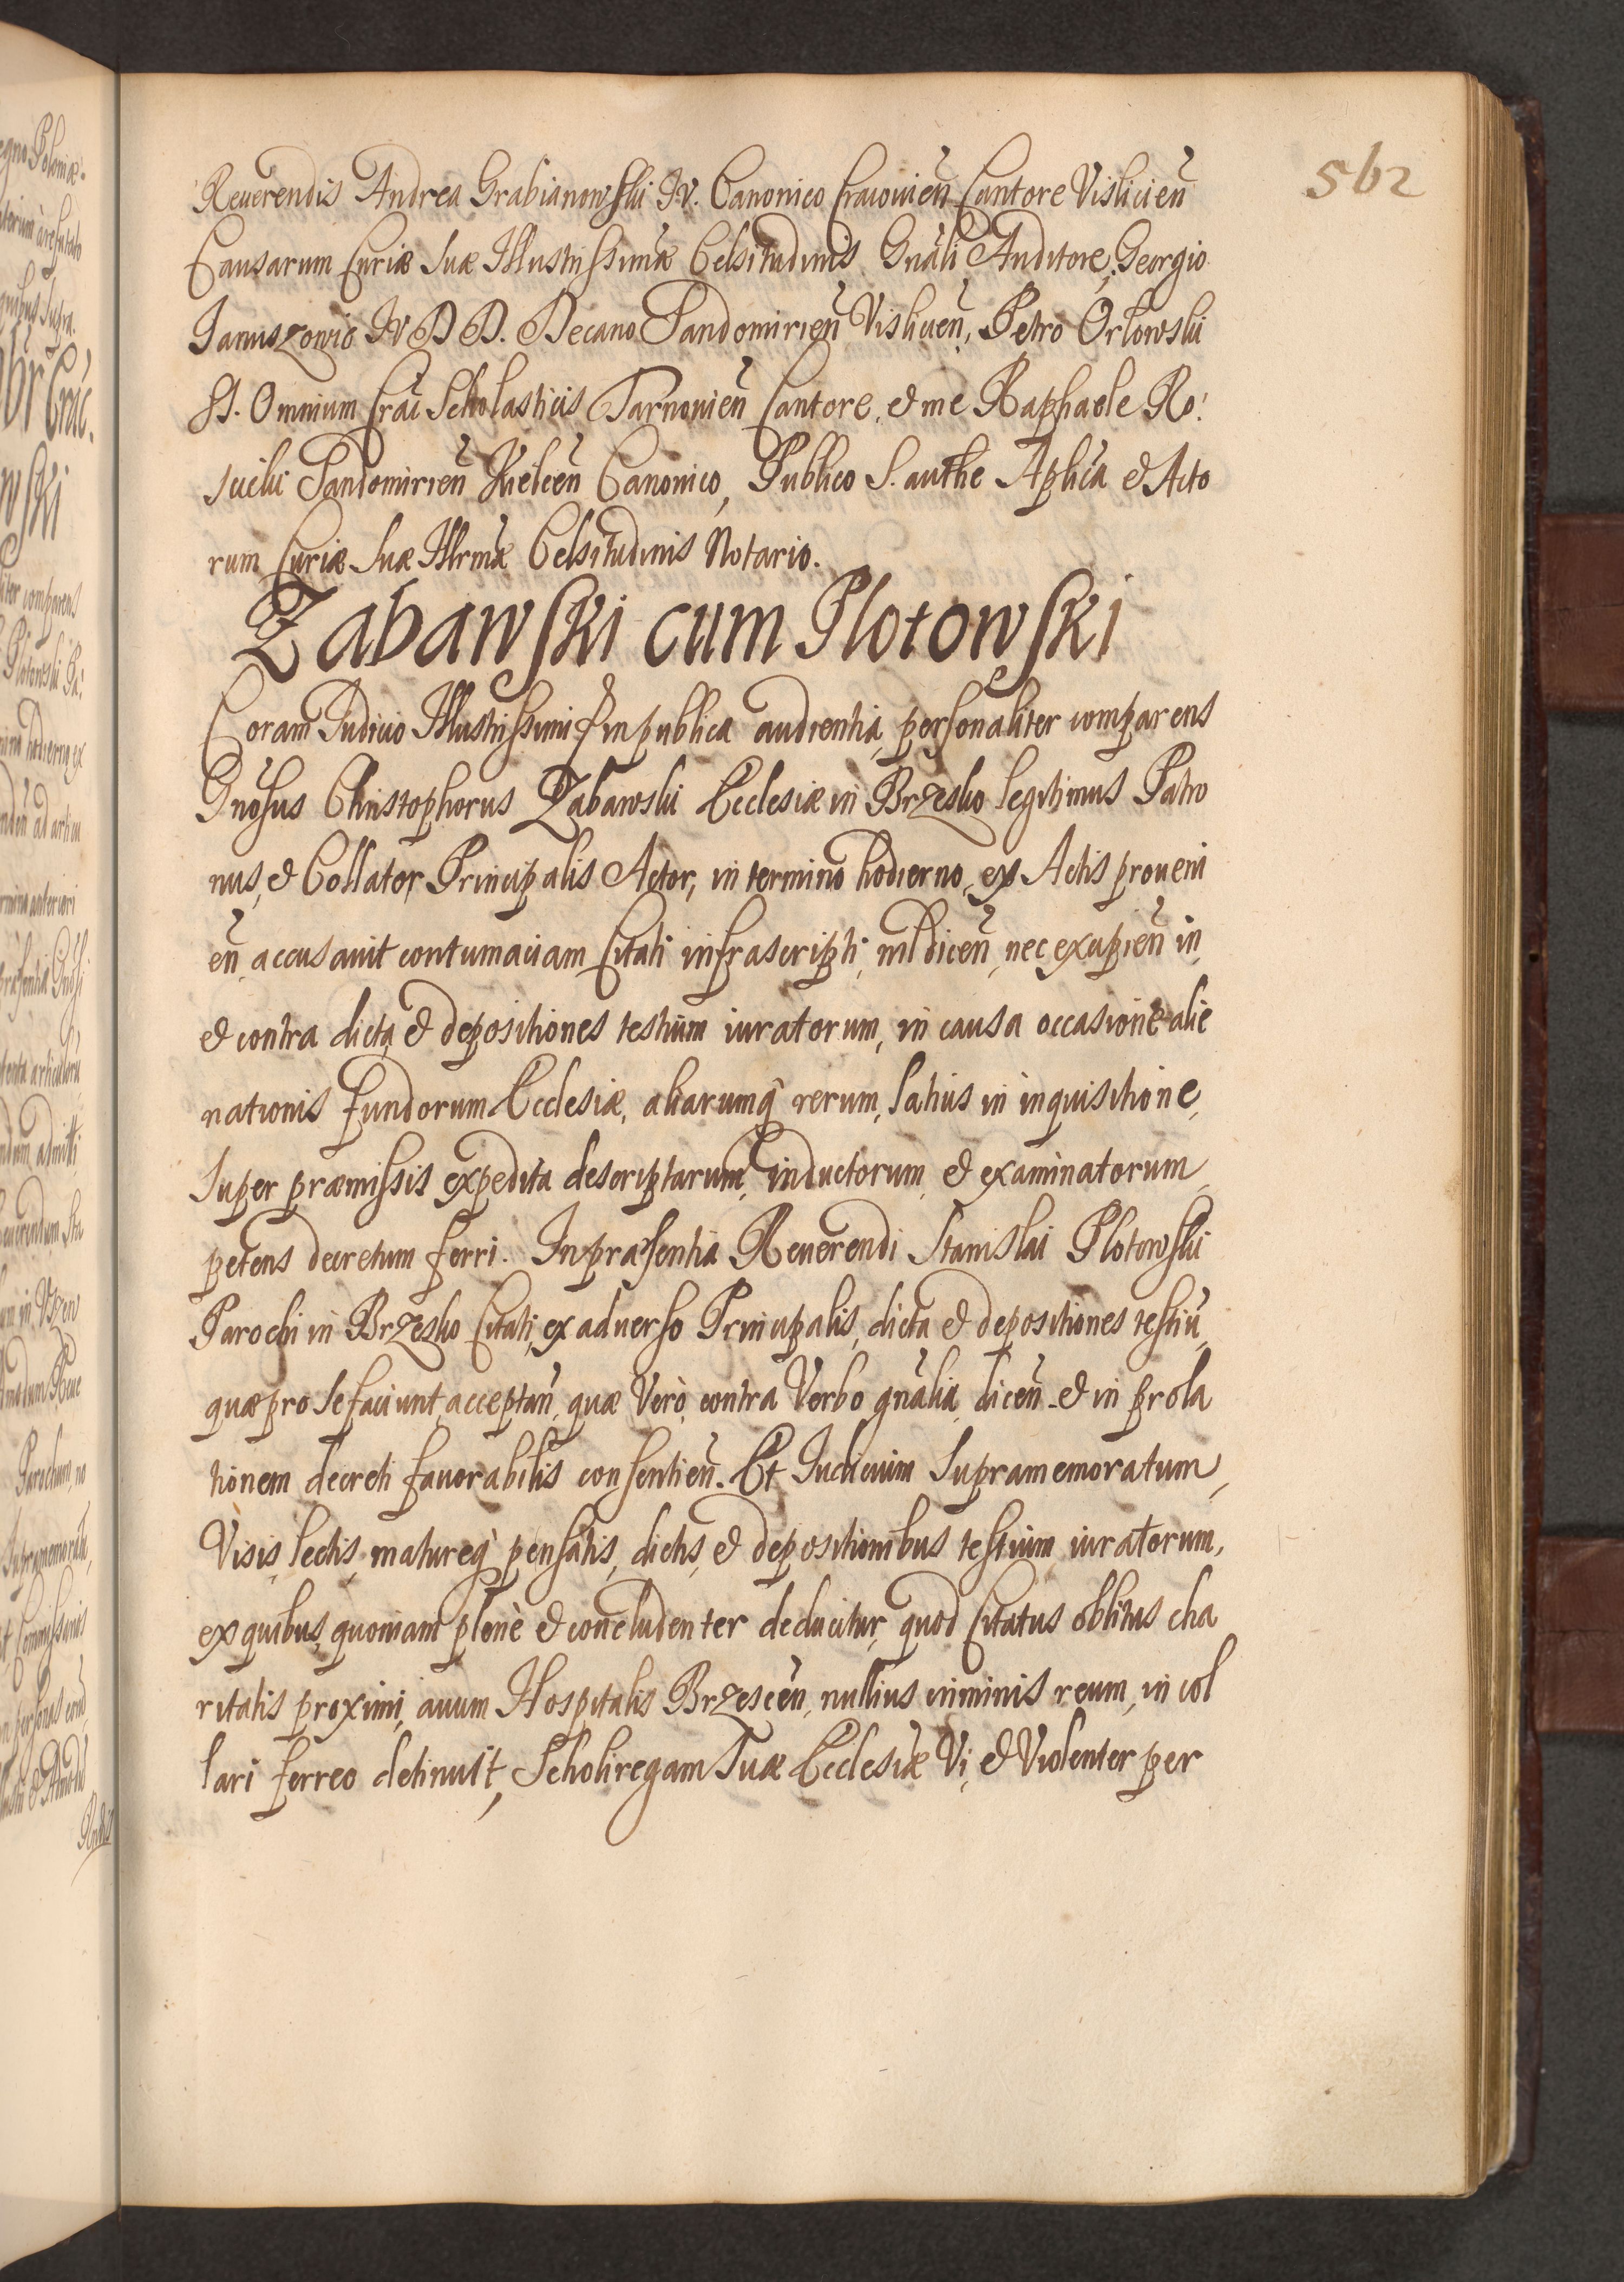 562
Reuerendis Andrea Grabianowski I.V. Canonico Cracouien̄ Cantore Visliciен̄
Causarum Curiæ Suæ Illustrissimæ Celsitudinis Gnāli Auditore, Georgio
Januszowic IVDD. Decano Sandomirien̄ Vislicien̄, Petro Orlowski
SS. Omnium Crac̄ Scholasticis Tarnouien̄ Cantore, & me Raphaele Ro:
sicki Sandomirien̄ Kielcen̄ Canonico, Publico S. authe Aplicā & Acto
rum Curiæ Suæ Illrmæ Celsitudinis Notario.
Zabawski cum Plotowski
Coram Judicio Illustrissimi & in publica audientia, personaliter comparens
Gnōsus Christophorus Zabawski Ecclesiæ in Brzesko legitimus Patro
nus, & Collator Principalis Actor, in termino hodierno, ex Actis proueni
en̄, accusauit contumaciam Citati infrascripti, nil dicen̄, nec excipien̄ in,
& contra dicta, & depositiones testium iuratorum, in causa occasione alie
nationis fundorum Ecclesiæ, aliarumq̄ rerum, latius in inquisitione,
super præmissis expedita descriptarum, inductorum, & examinatorum,
petens decretum ferri. In præsentia Reuerendi Stanislai Plotowski
Parochi in Brzesko Citati, ex aduerso Principalis, dicta & depositiones testiū,
quæ pro se faciunt, acceptan̄, quæ Verò, contra Verbo gnālia, dicen̄ & in prola
tionem decreti fauorabilis consentien̄. Et Judicium Supramemoratum,
Visis, lectis, matureq̄ pensatis, dictis, & depositionibus testium iuratorum,
ex quibus, quoniam plenè & concludenter deducitur, quod Citatus oblitus cha
ritatis proximi, auum Hospitalis Brzescen̄, nullius criminis reum, in col
lari ferreo detinuit, Scholiregam Suæ Ecclesiæ Vi, & Violenter per